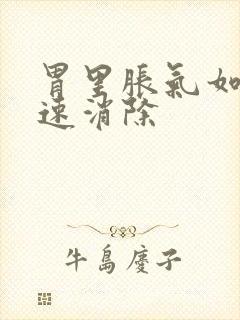 胃里脹氣如
速消除
牛島慶子